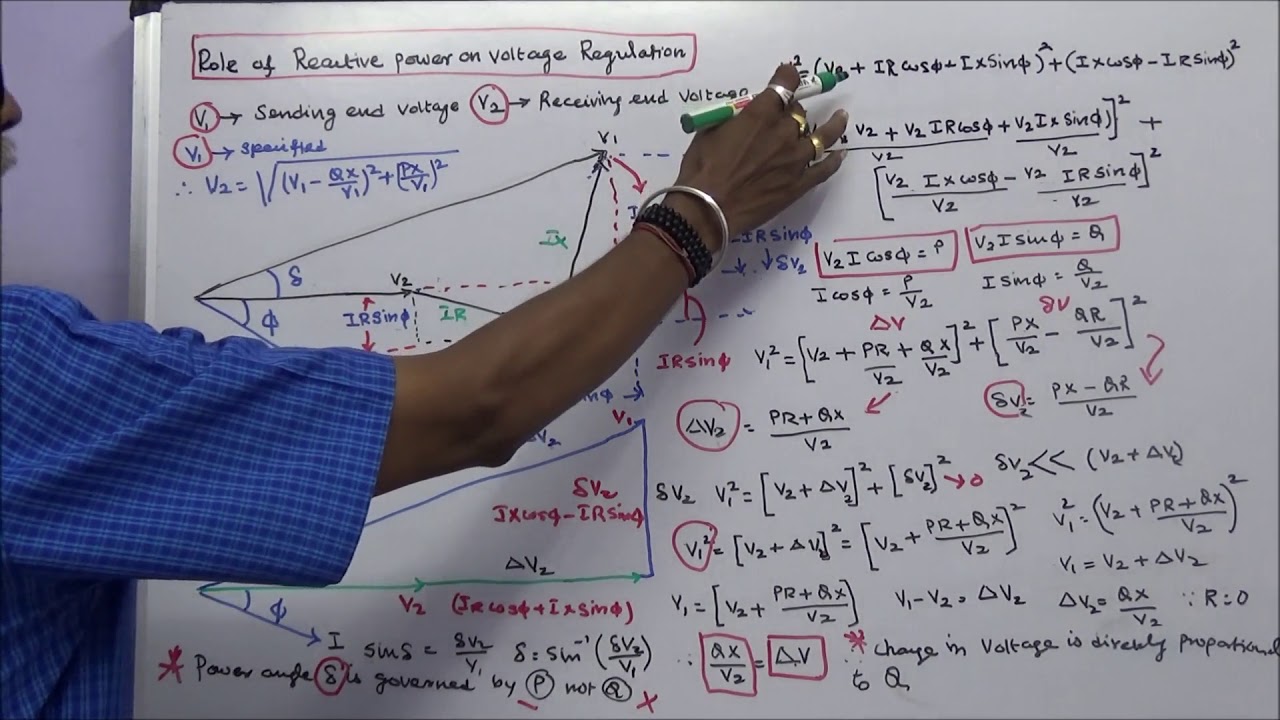 Role of Reactive power on voltage Regulation
V1 → Sending end voltage V2 → Receiving end voltage
V1 → specified
∴ V2 = √((V1 - QX/V1)² + (PX/V1)²)
² = (V2 + IR cosφ + IX sinφ)² + (IX cosφ - IR sinφ)²
V2 + V2 IR cosφ/V2 + V2 IX sinφ)/V2]² +
[V2 IX cosφ/V2 - V2 IR sinφ/V2]²
V1
IX
δ
V2
IR
φ
IR sinφ
- IR sinφ
↓ δV2
IR sinφ
V2 I cosφ = P
V2 I sinφ = Q
I cosφ = P/V2
I sinφ = Q/V2
ΔV δV
V1² = [V2 + PR/V2 + QX/V2]² + [PX/V2 - QR/V2]²
ΔV2 = PR + QX/V2
δV2 = PX - QR/V2
δV2 << (V2 + ΔV2)
δV2 V1² = [V2 + ΔV2]² + [δV2]² → 0
V1² = [V2 + ΔV2]² = [V2 + PR + QX/V2]²
V1² = (V2 + PR + QX/V2)²
V1 = V2 + ΔV2
V1 = [V2 + PR + QX/V2]
V1 - V2 = ΔV2
ΔV2 = QX/V2 ∵ R = 0
V1
δV2
IX cosφ - IR sinφ
ΔV2
V2 (IR cosφ + IX sinφ)
φ
I
sinδ = δV2/V1 δ = sin⁻¹(δV2/V1)
∴ QX/V2 = ΔV
* Power angle δ is governed by P not Q *
* Change in Voltage is directly proportional
to Q